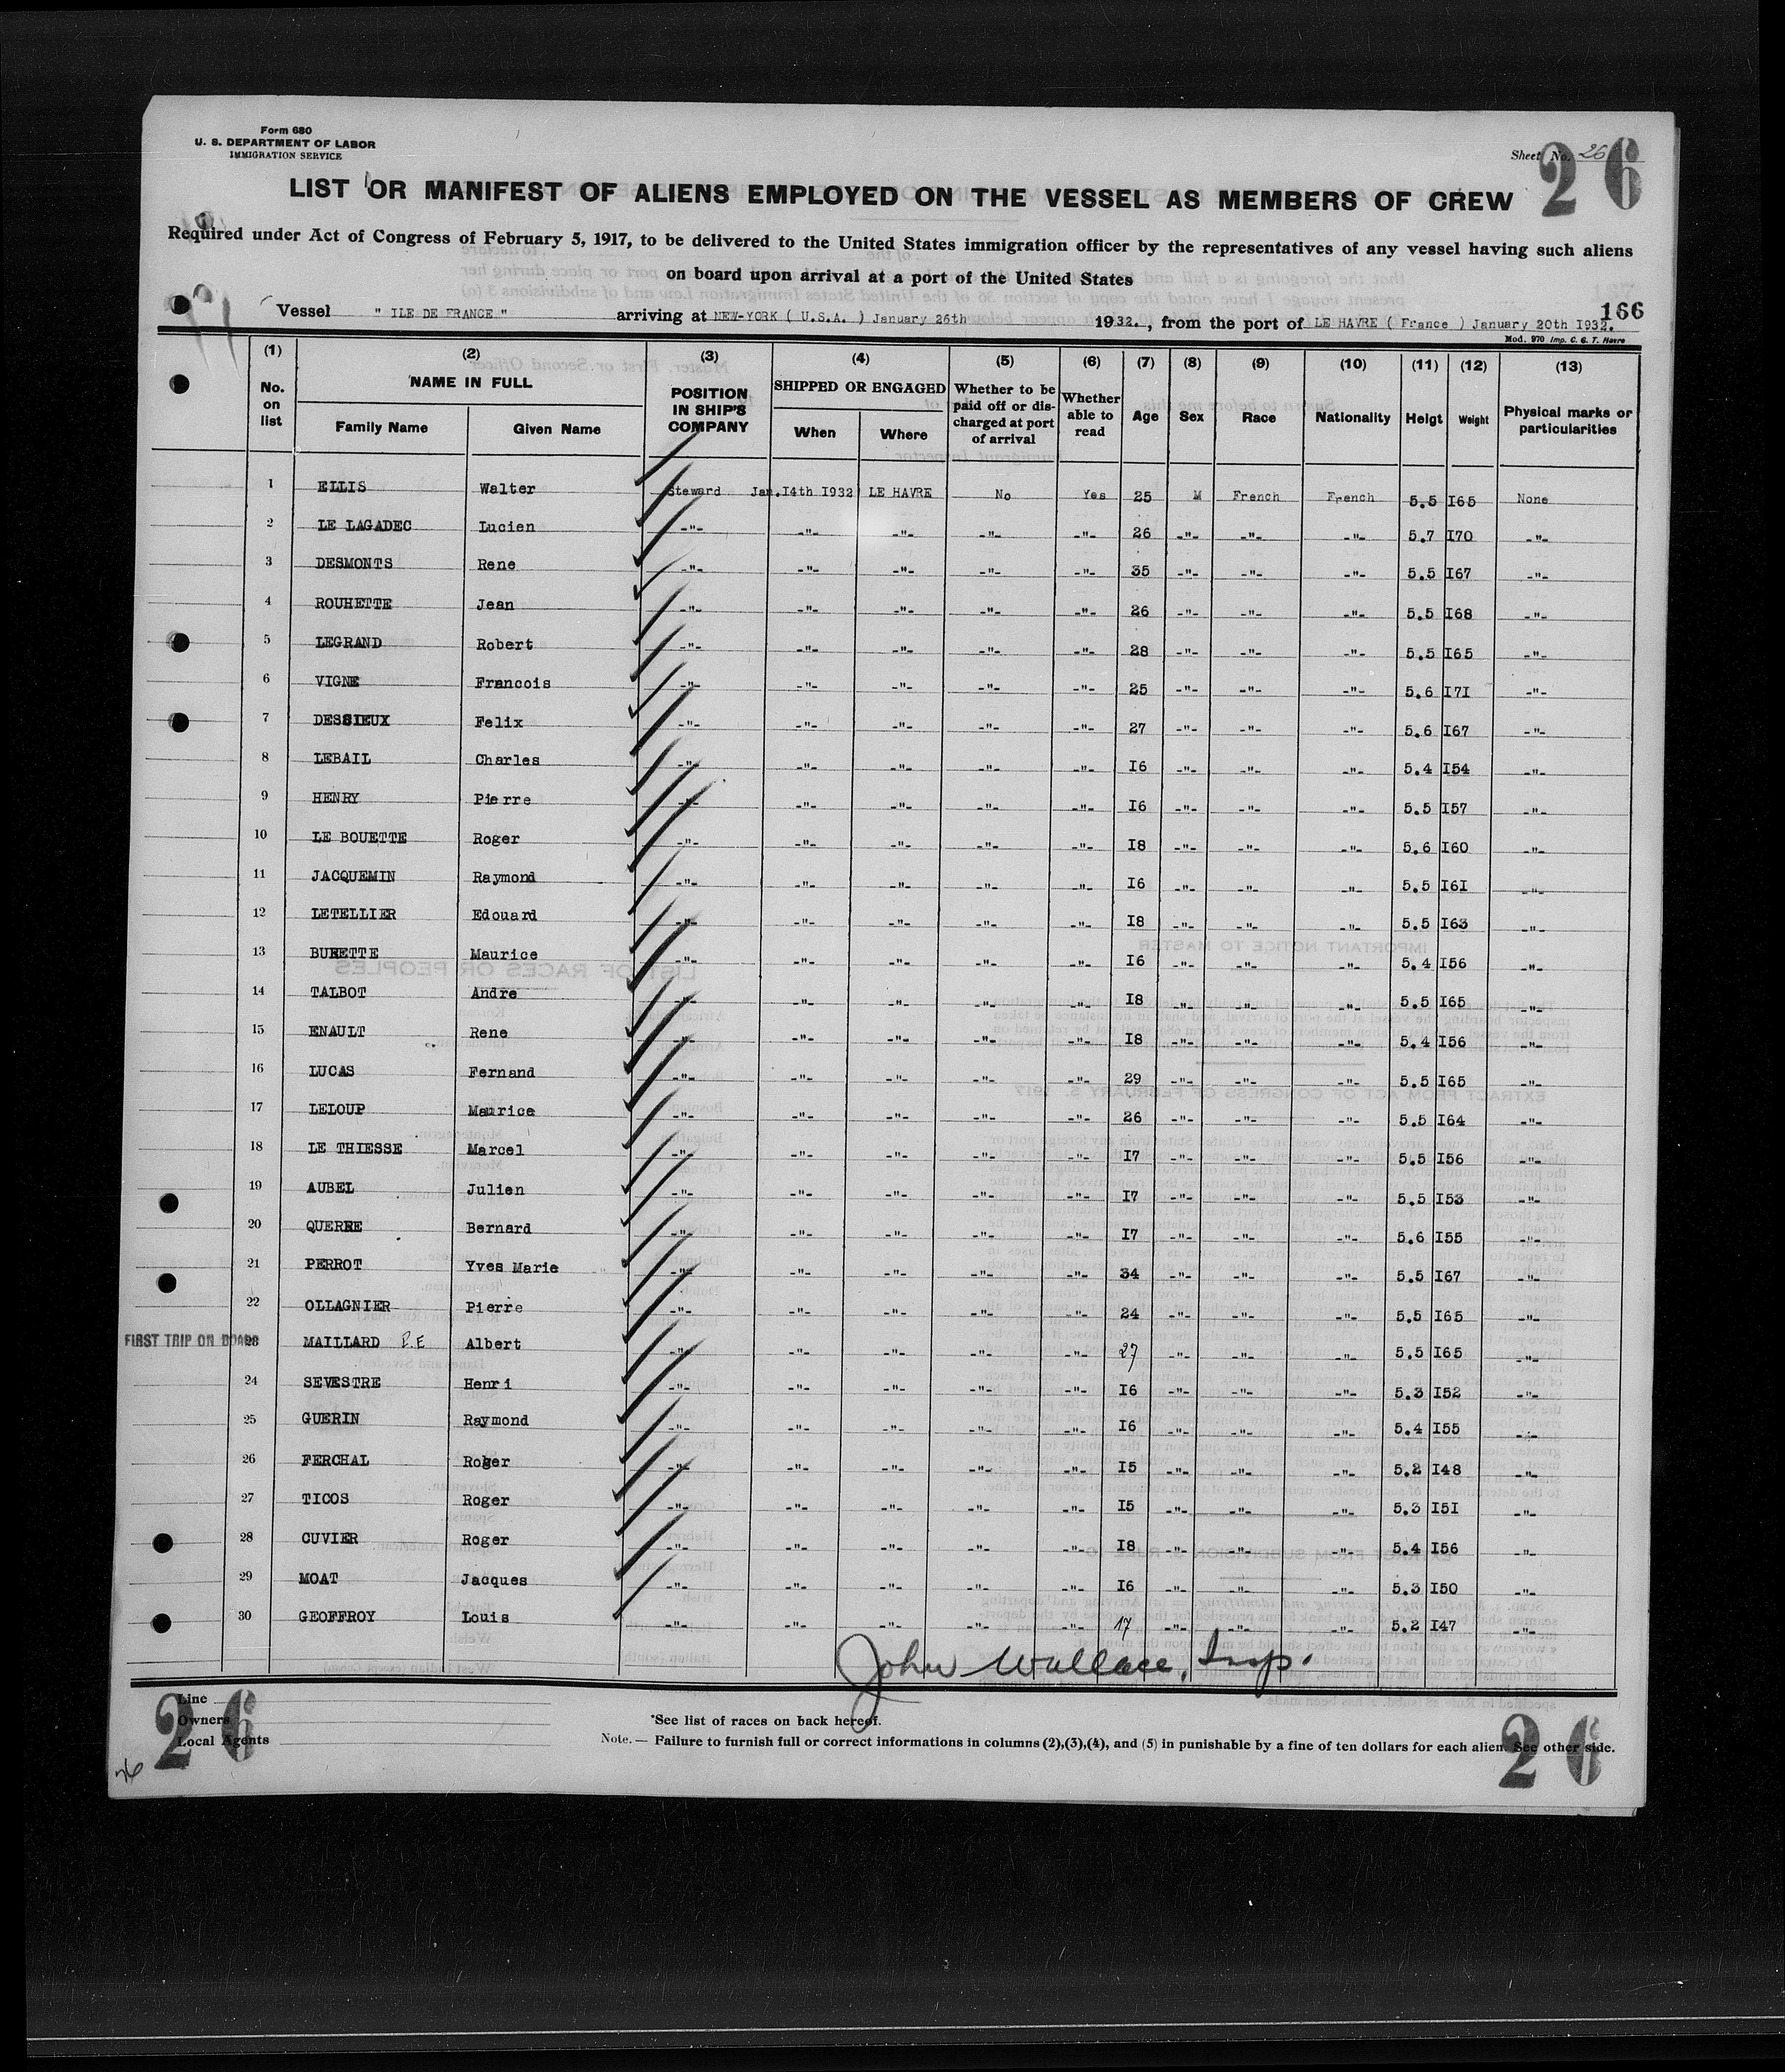 Form 680
U. S. DEPARTMENT OF LABOR
IMMIGRATION SERVICE
Sheet No. 26
26
LIST OR MANIFEST OF ALIENS EMPLOYED ON THE VESSEL AS MEMBERS OF CREW
Required under Act of Congress of February 5, 1917, to be delivered to the United States immigration officer by the representatives of any vessel having such aliens
on board upon arrival at a port of the United States
166
Vessel " ILE DE FRANCE " arriving at NEW-YORK ( U.S.A. ) January 26th 1932., from the port of LE HAVRE ( France ) January 20th I932.
Mod. 970 Imp. C. G. T. Havre
(1) (2) (3) (4) (5) (6) (7) (8) (9) (10) (11) (12) (13)
No. on list NAME IN FULL Family Name Given Name POSITION IN SHIP'S COMPANY SHIPPED OR ENGAGED When Where Whether to be paid off or discharged at port of arrival Whether able to read Age Sex Race Nationality Heigt Weight Physical marks or particularities
1 ELLIS Walter Steward Jan.I4th I932 LE HAVRE No Yes 25 M French French 5.5 I65 None
2 LE LAGADEC Lucien -"- -"- -"- -"- -"- 26 -"- -"- -"- 5.7 I70 -"-
3 DESMONTS Rene -"- -"- -"- -"- -"- 35 -"- -"- -"- 5.5 I67 -"-
4 ROUHETTE Jean -"- -"- -"- -"- -"- 26 -"- -"- -"- 5.5 I68 -"-
5 LEGRAND Robert -"- -"- -"- -"- -"- 28 -"- -"- -"- 5.5 I65 -"-
6 VIGNE Francois -"- -"- -"- -"- -"- 25 -"- -"- -"- 5.6 I7I -"-
7 DESSIEUX Felix -"- -"- -"- -"- -"- 27 -"- -"- -"- 5.6 I67 -"-
8 LEBAIL Charles -"- -"- -"- -"- -"- I6 -"- -"- -"- 5.4 I54 -"-
9 HENRY Pierre -"- -"- -"- -"- -"- I6 -"- -"- -"- 5.5 I57 -"-
10 LE BOUETTE Roger -"- -"- -"- -"- -"- I8 -"- -"- -"- 5.6 I60 -"-
11 JACQUEMIN Raymond -"- -"- -"- -"- -"- I6 -"- -"- -"- 5.5 I6I -"-
12 LETELLIER Edouard -"- -"- -"- -"- -"- I8 -"- -"- -"- 5.5 I63 -"-
13 BURETTE Maurice -"- -"- -"- -"- -"- I6 -"- -"- -"- 5.4 I56 -"-
14 TALBOT Andre -"- -"- -"- -"- -"- I8 -"- -"- -"- 5.5 I65 -"-
15 ENAULT Rene -"- -"- -"- -"- -"- I8 -"- -"- -"- 5.4 I56 -"-
16 LUCAS Fernand -"- -"- -"- -"- -"- 29 -"- -"- -"- 5.5 I65 -"-
17 LELOUP Maurice -"- -"- -"- -"- -"- 26 -"- -"- -"- 5.5 I64 -"-
18 LE THIESSE Marcel -"- -"- -"- -"- -"- I7 -"- -"- -"- 5.5 I56 -"-
19 AUBEL Julien -"- -"- -"- -"- -"- I7 -"- -"- -"- 5.5 I53 -"-
20 QUERRE Bernard -"- -"- -"- -"- -"- I7 -"- -"- -"- 5.6 I55 -"-
21 PERROT Yves Marie -"- -"- -"- -"- -"- 34 -"- -"- -"- 5.5 I67 -"-
22 OLLAGNIER Pierre -"- -"- -"- -"- -"- 24 -"- -"- -"- 5.5 I65 -"-
FIRST TRIP ON BOARD 23 MAILLARD P.E Albert -"- -"- -"- -"- -"- 27 -"- -"- -"- 5.5 I65 -"-
24 SEVESTRE Henri -"- -"- -"- -"- -"- I6 -"- -"- -"- 5.3 I52 -"-
25 GUERIN Raymond -"- -"- -"- -"- -"- I6 -"- -"- -"- 5.4 I55 -"-
26 FERCHAL Roger -"- -"- -"- -"- -"- I5 -"- -"- -"- 5.2 I48 -"-
27 TICOS Roger -"- -"- -"- -"- -"- I5 -"- -"- -"- 5.3 I5I -"-
28 CUVIER Roger -"- -"- -"- -"- -"- I8 -"- -"- -"- 5.4 I56 -"-
29 MOAT Jacques -"- -"- -"- -"- -"- I6 -"- -"- -"- 5.3 I50 -"-
30 GEOFFROY Louis -"- -"- -"- -"- -"- 17 -"- -"- -"- 5.2 I47 -"-
John Wallace, Insp.
Line
Owners
Local Agents
26
*See list of races on back hereof.
Note. — Failure to furnish full or correct informations in columns (2),(3),(4), and (5) in punishable by a fine of ten dollars for each alien. See other side.
26
26